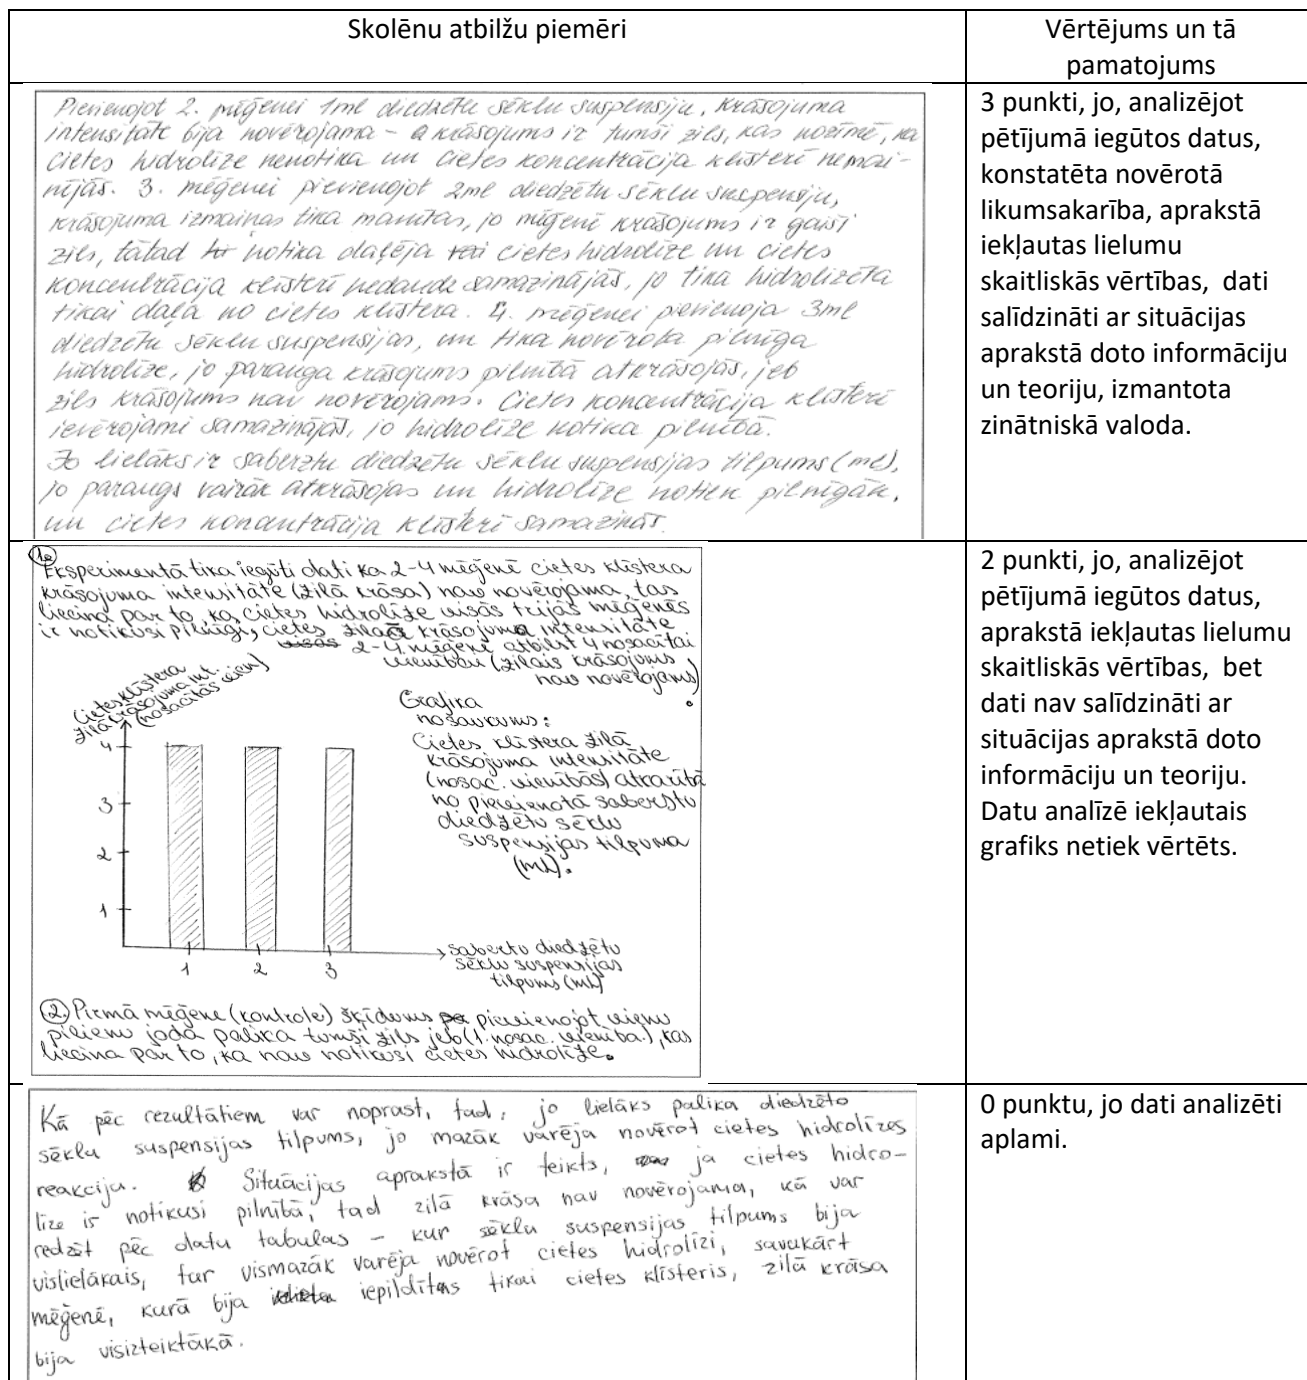 Skolēnu atbilžu piemēri
Vērtējums un tā
pamatojums
Pievienojot 2. mēģenei 1ml diedzētu sēklu suspensiju, krāsojuma
intensitāte bija novērojama – krāsojums ir tumši zils, kas nozīmē, ka
cietes hidrolīze nenotika un cietes koncentrācija klīsterī nemai-
nījās. 3. mēģenei pievienojot 2ml diedzētu sēklu suspensiju,
krāsojuma izmaiņas tika manītas, jo mēģenē krāsojums ir gaiši
zils, tātad notika daļēja cietes hidrolīze un cietes
koncentrācija klīsterī nedaudz samazinājās, jo tika hidrolizēta
tikai daļa no cietes klīstera. 4. mēģenei pievienoja 3ml
diedzētu sēklu suspensijas, un tika novērota pilnīga
hidrolīze, jo parauga krāsojums pilnībā atkrāsojās, jeb
zils krāsojums nav novērojams. Cietes koncentrācija klīsterī
ievērojami samazinājās, jo hidrolīze notika pilnībā.
Jo lielāks ir saberztu diedzētu sēklu suspensijas tilpums (ml),
jo paraugs vairāk atkrāsojas un hidrolīze notiek pilnīgāk,
un cietes koncentrācija klīsterī samazinās.
3 punkti, jo, analizējot
pētījumā iegūtos datus,
konstatēta novērotā
likumsakarība, aprakstā
iekļautas lielumu
skaitliskās vērtības, dati
salīdzināti ar situācijas
aprakstā doto informāciju
un teoriju, izmantota
zinātniskā valoda.
1.
Eksperimentā tika iegūti dati ka 2-4 mēģenē cietes klīstera
krāsojuma intensitāte (zilā krāsa) nav novērojama, tas
liecina par to, ka cietes hidrolīze visās trijās mēģenēs
ir notikusi pilnīgi, cietes zilā krāsojuma intensitāte
2-4. mēģenē atbilst 4 nosacītai
vienībai (zilais krāsojums
nav novērojams).
Cietes klīstera
zilā krāsojuma int.
(nosacītās vien)
4
3
2
1
1 2 3
Grafika
nosaukums:
Cietes klīstera zilā
krāsojuma intensitāte
(nosac. vienībās) atkarībā
no pievienotā saberztu
diedzētu sēklu
suspensijas tilpuma
(mL).
saberztu diedzētu
sēklu suspensijas
tilpums (ml)
2. Pirmā mēģene (kontrole) šķīdums pievienojot vienu
pilienu joda palika tumši zils jeb (1. nosac. vienība.), kas
liecina par to, ka nav notikusi cietes hidrolīze.
2 punkti, jo, analizējot
pētījumā iegūtos datus,
aprakstā iekļautas lielumu
skaitliskās vērtības, bet
dati nav salīdzināti ar
situācijas aprakstā doto
informāciju un teoriju.
Datu analīzē iekļautais
grafiks netiek vērtēts.
Kā pēc rezultātiem var noprast, tad, jo lielāks palika diedzēto
sēklu suspensijas tilpums, jo mazāk varēja novērot cietes hidrolīzes
reakciju. Situācijas aprakstā ir teikts, ja cietes hidro-
līze ir notikusi pilnībā, tad zilā krāsa nav novērojama, kā var
redzēt pēc datu tabulas – kur sēklu suspensijas tilpums bija
vislielākais, tur vismazāk varēja novērot cietes hidrolīzi, savukārt
mēģenē, kurā bija iepildīts tikai cietes klīsteris, zilā krāsa
bija visizteiktākā.
0 punktu, jo dati analizēti
aplami.